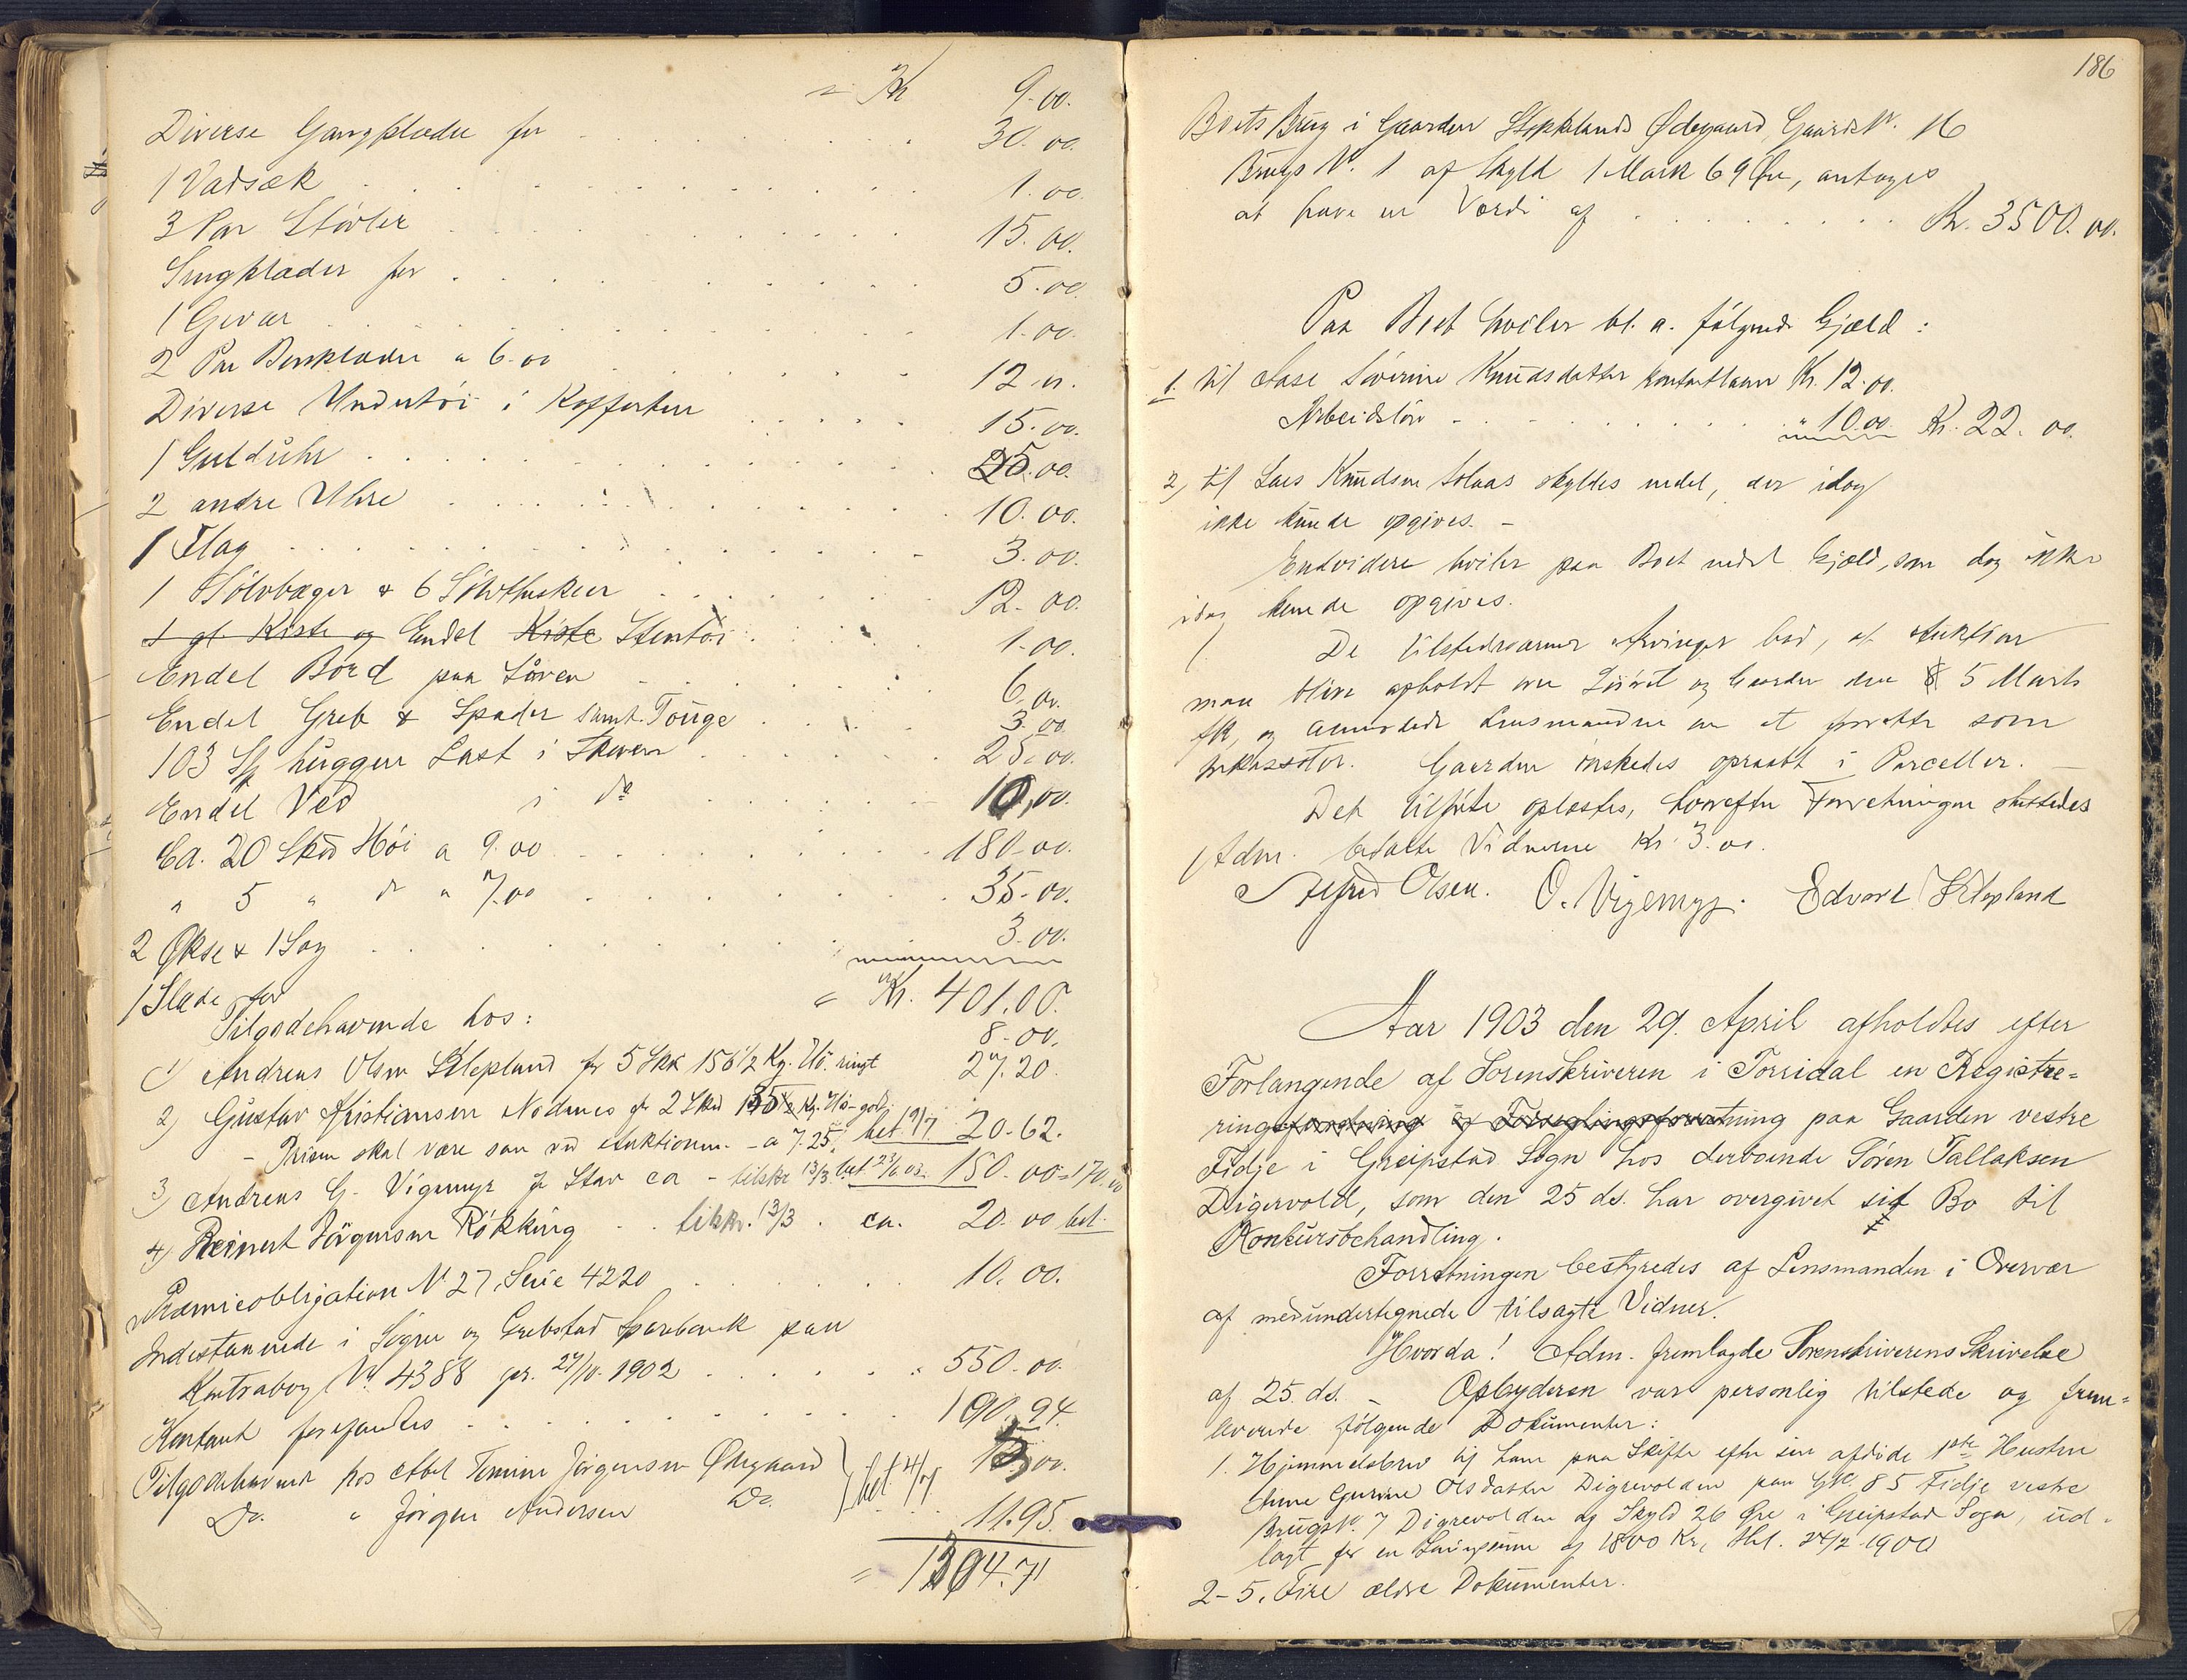 = Kr 9.00.
Diverse Gangklæder for 30.00.
1 Vadsæk 1.00.
3 Par Støvler 15.00.
Sengklæder for 5.00
1 Gevær 1.00.
2 Par Benklæder a 6.00 12.00.
Diverse Undertøi i Kofferten 15.00.
1 Gulduhr 25.00.
2 andre Uhre 10.00.
1 Flag 3.00.
1 Sølvbæger & 6 Sølvtheskeer 12.00.
1 gl. Kiste og Endel Kiste Stentøi 1.00.
Endel Bord paa Låven 6.00.
Endel Greb & Spader samt Touge 3.00
103 St hŭggen Last i Skoven 25.00.
Endel Ved i do 10,00.
Ca. 20 Sk℔ Høi a 9.00 180.00.
" 5 " do a 7.00 35.00.
2 Økse & 1 Sag 3.00.
= Kr. 401.00.
1 Slæde for 8.00.
Tilgodehavende hos:
1) Andreas Olsen Stlepland for 5 Sk℔ 156 1/2 Kg. Hø ringt 27.20.
2) Gustav Kristiansen Nodenes for 2 Sk℔ 135 1/2 Kg. Hø- godt
- Prisen skal være som ved Auktionen - a 7.25. bet 19/7. 20.62.
3) Andreas G. Vigemyr for Stav ca - tilskr 13/3. bet 23/6 03. 150.00 = 170.00
4) Reinert Jörgensen Rókking tilskr. 13/3. ca. 20.00 bet.
Præmieobligation No 27, Serie 4220 10.00.
Indestaaende i Søgne og Grebstad Sparebank paa
Kontrabog No. 4388 pr. 27/10. 1902 550.00.
Kontant forefandtes 190.94.
Tilgodehavende hos Abel Tomine Jörgensen Ødegaard 15,00.
Do. " Jörgen Andersen Do. bet 4/7 11.95.
= 1394.71
186
Boets Brug i Gaarden Stepklands Ødegaard, Gaards No. 16
Brugs No. 1 af Skyld 1 Mark 69 Øre, antages
at have en Værdi af Kr. 3500.00.
Paa Boet hviler bl. a. følgende Gjæld:
1. til Aase Sóverine Knŭdsdatter kontantlaan Kr. 12.00.
Arbeidsløn " 10.00. Kr. 22.00.
2) til Lars Knŭdsen Solaas skyldes endel, der idag
ikke kŭnde opgives. -
Endvidere hviler paa Boet endel Gjæld, som dog ikke
idag kunde opgives.
De tilstedeværende Arvinger bad, at Auktion
maa blive afholdt over Løsøret og Gaarden den 5 Marts
fk, og anmodede Lensmanden om at forrette som
Inkassator. Gaarden ønskedes opraabt i Parceller.
Det tilførte oplæstes, hvorefter Forretningen sluttedes
Adm. betalte Vidnerne Kr. 3.00.
Alfred Olsen. O. Vigemyr. Edvard Klepland
Aar 1903 den 29. April afholdtes efter
Forlangende af Sorenskriveren i Torridal en Registre=
ringsforretning og Forseglingsforretning paa Gaarden vestre
Fidje i Greipstad Sogn hos derboende Sören Tallaksen
Digervold, som den 25 ds. har overgivet sit Bo til
Konkŭrsbehandling.
Forretningen bestyredes af Lensmanden i Overvær
af medŭndertegnede tilsagte Vidner.
Hvorda! Adm. fremlagde Sorenskriverens Skrivelse
af 25. ds. - Opbyderen var personlig tilstede og frem=
leverede følgende Dokŭmenter:
1. Hjemmelsbrev til ham paa Skifte efter sin afdøde 1ste Hustru
Anne Gurine Olsdatter Digrevolden paa GNo. 85 Fidje vestre
BrŭgsNo. 7 Digrevolden af Skyld 26 Øre i Greipstad Sogn, ŭd-
lagt for en Sum af 1800 Kr, thl. 24/2 1900
2-5. Fire ældre Dokŭmenter.